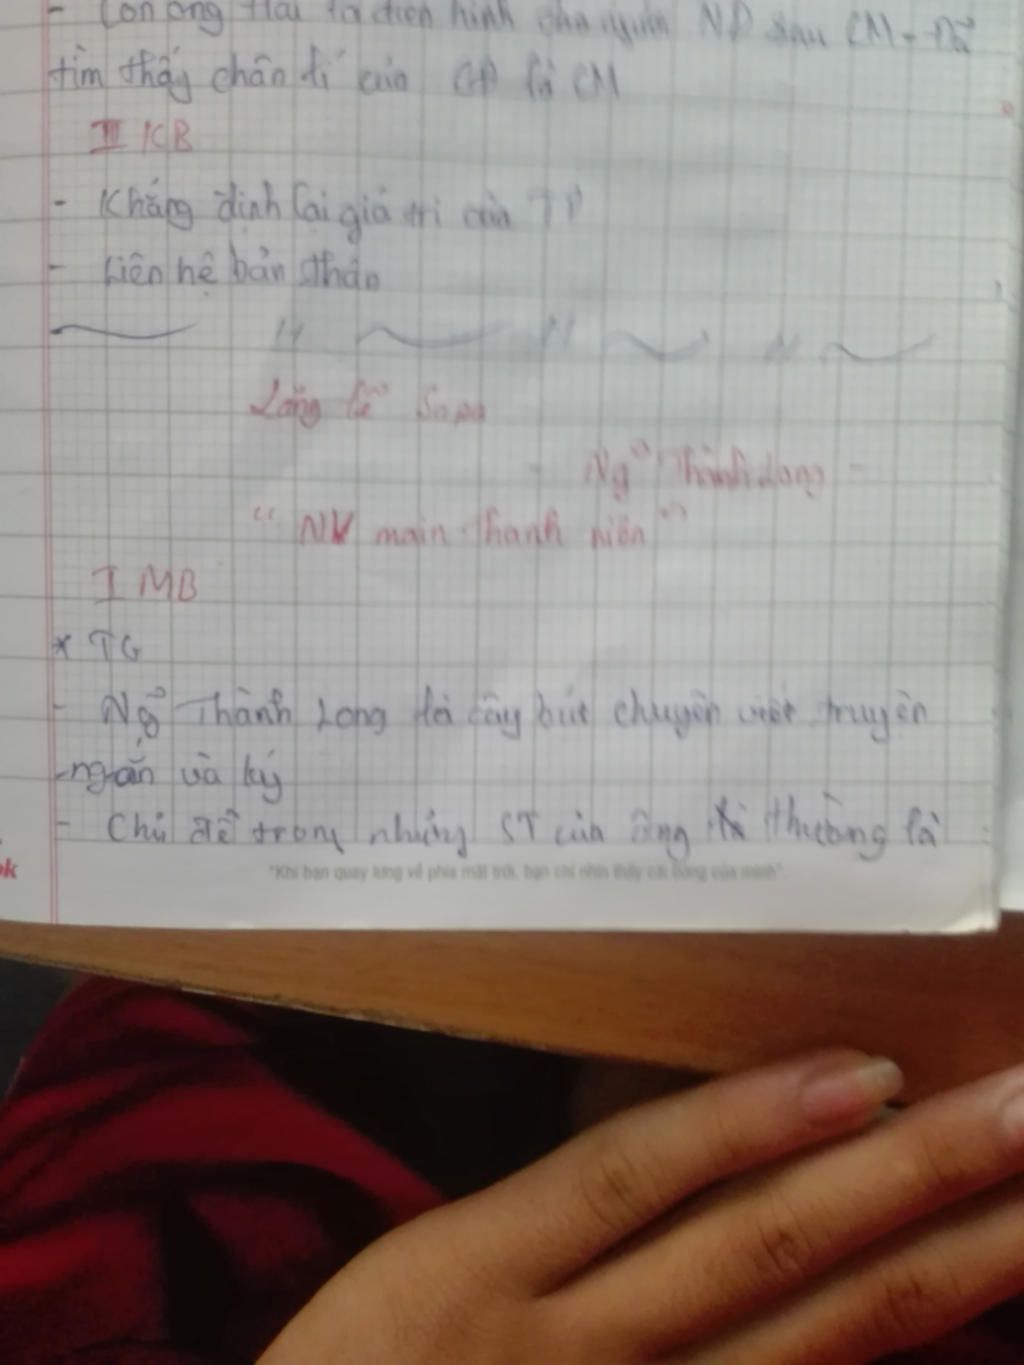 - Còn ông Hai là điển hình cho người ND sau CM - Đã
tìm thấy chân lí của CĐ là CM
III KB
- Khẳng định lại giá trị của TP
- Liên hệ bản thân
Lặng lẽ Sapa
- Ng~ Thành Long -
" NV main thanh niên "
I MB
* TG
- Ng~ Thành Long là cây bút chuyên viết truyện
ngắn và ký
- Chủ đề trong những ST của ông thường là :
ok
"Khi bạn quay lưng về phía mặt trời, bạn chỉ nhìn thấy cái bóng của mình".